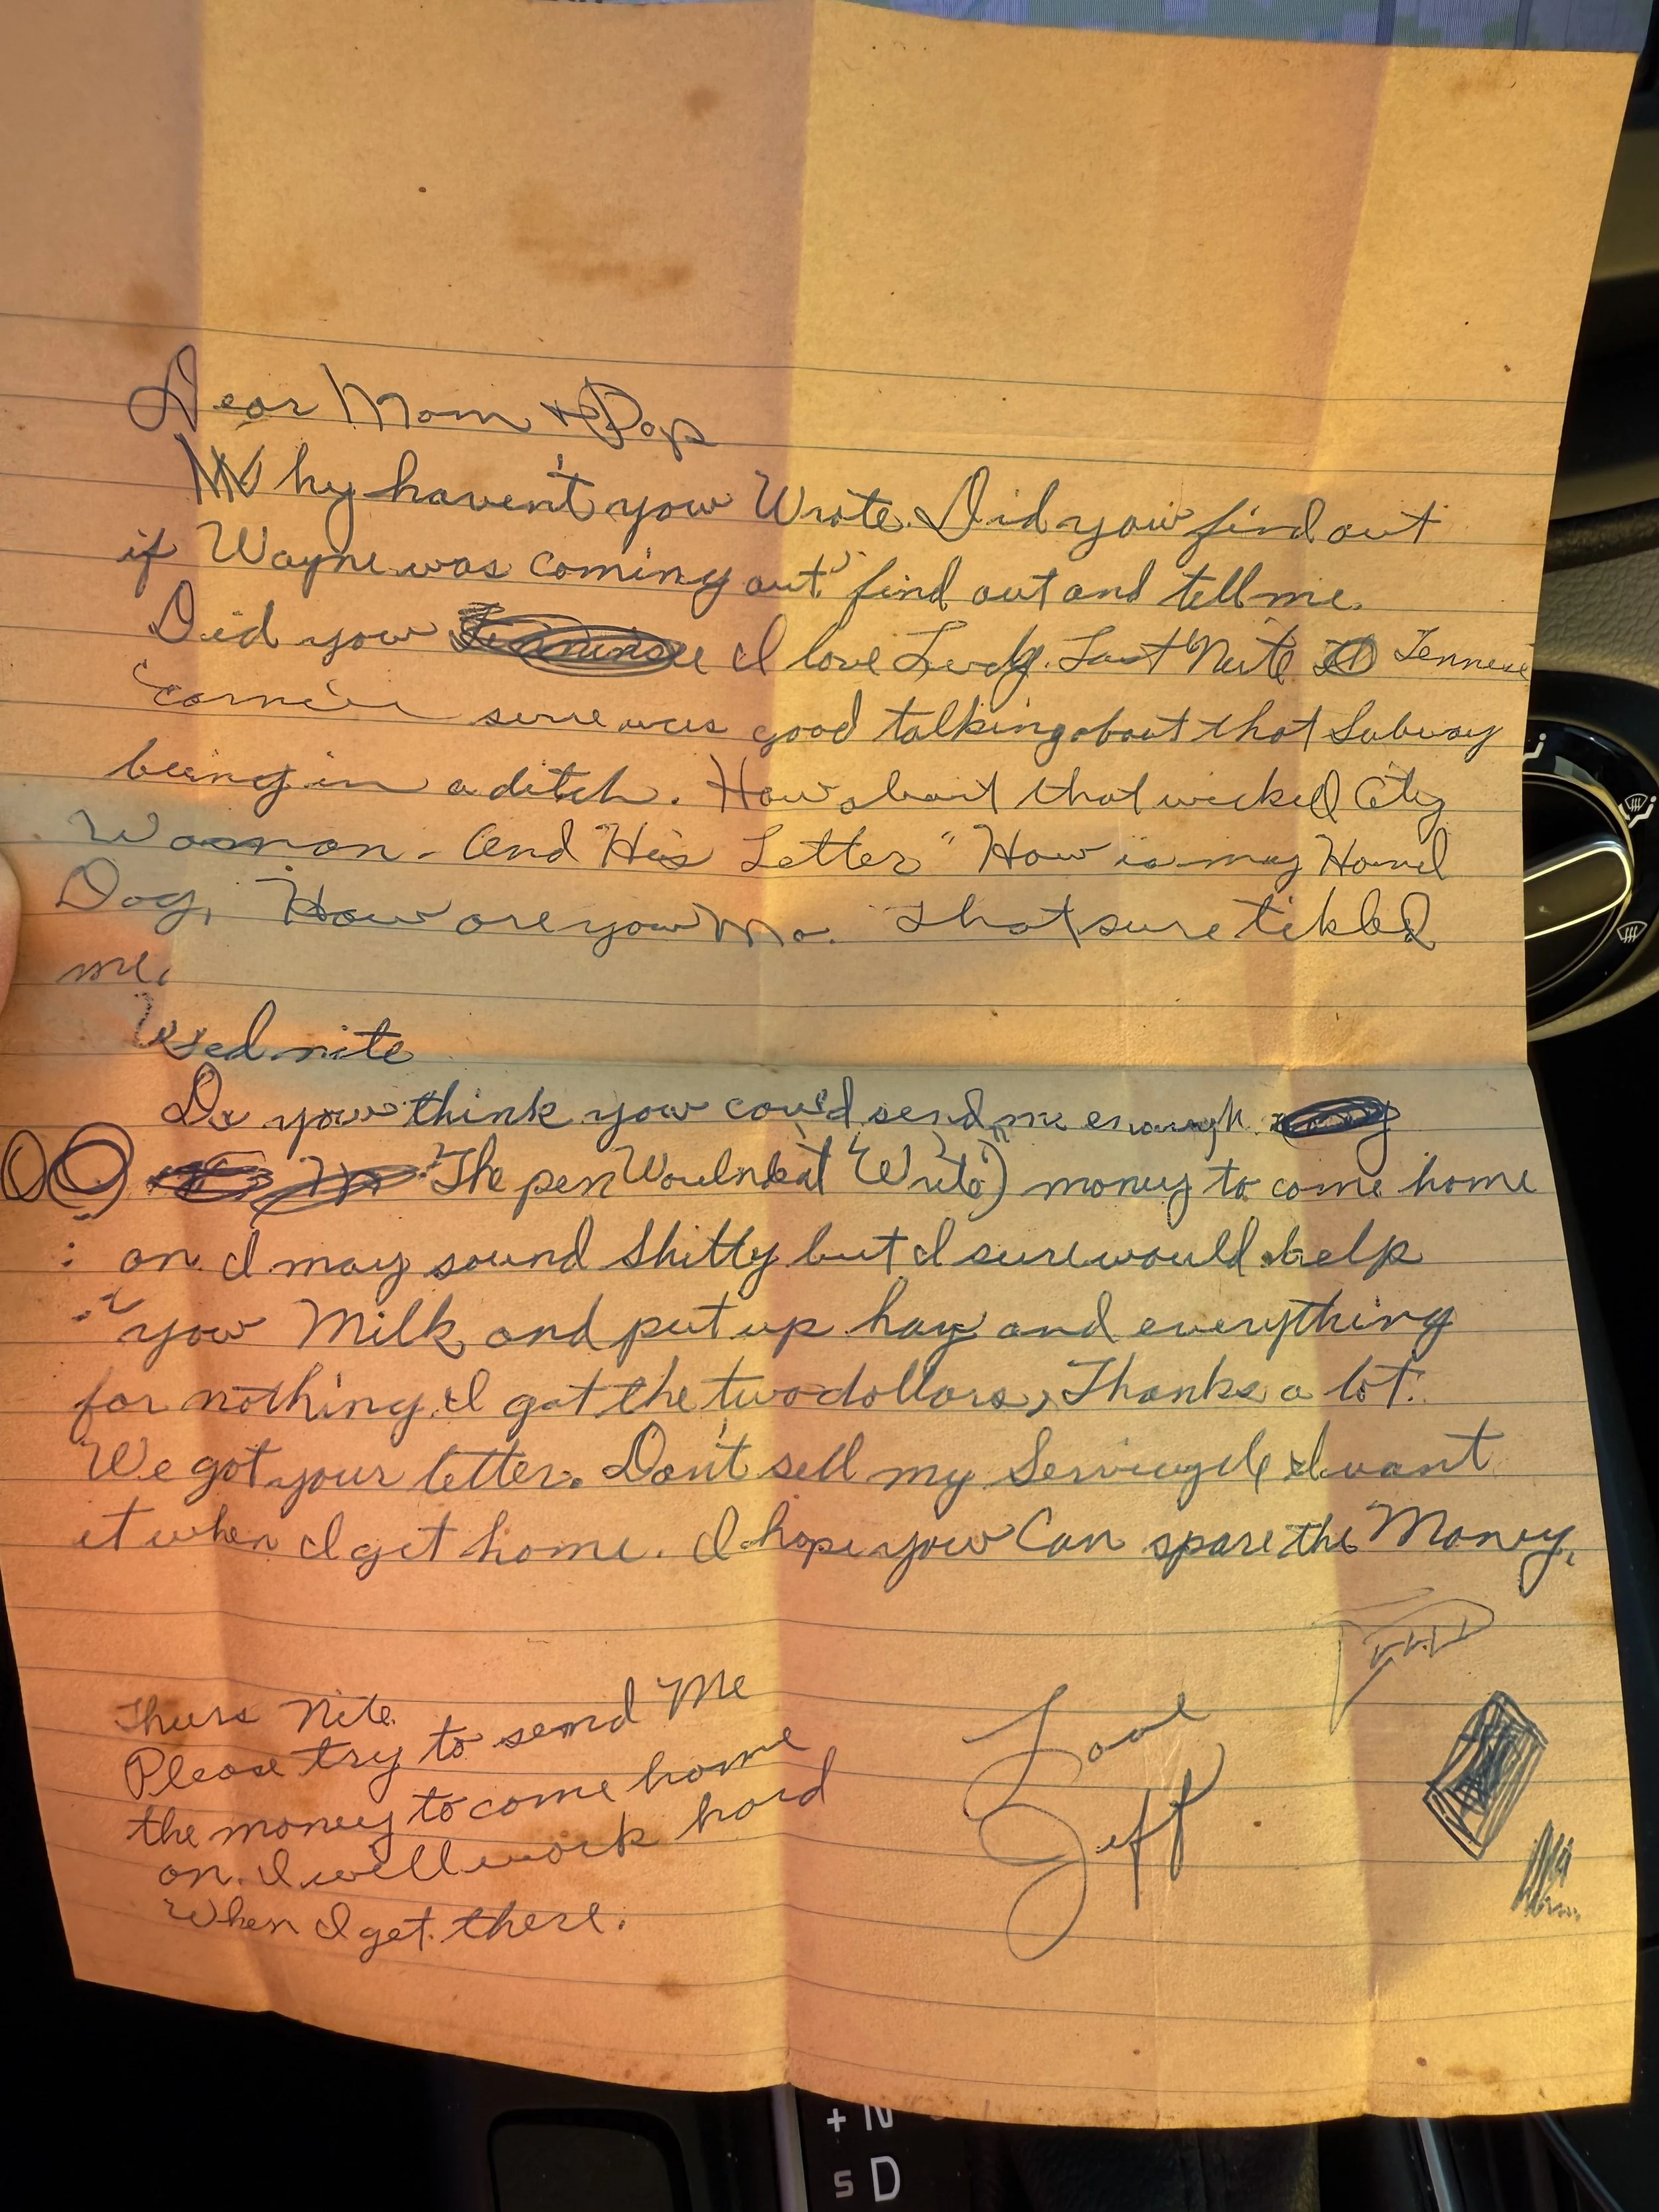 Dear Mom & Pop
Why haven't you Wrote. Did you find out
if Wayne was coming out" find out and tell me.
Did you I love Lucy. Last Nite Tennessee
Earnie sure was good talking about that Subway
being in a ditch. How about that wicked City
Woman. And His Letter "How is my Hound
Dog, How are you Ma. That sure tickled
me.
Wed. nite
Do you think you could send me enough
The pen Wouldn't Write) money to come home
on. I may sound Shitty but I sure would help
you Milk and put up hay and everything
for nothing. I got the two dollars, Thanks a lot.
We got your letter. Don't sell my Servicycle I want
it when I get home. I hope you Can spare the Money.
Thurs Nite.
Please try to send Me
the money to come home
on. I will work hard
When I get there.
Love
Jeff
+ N
S D